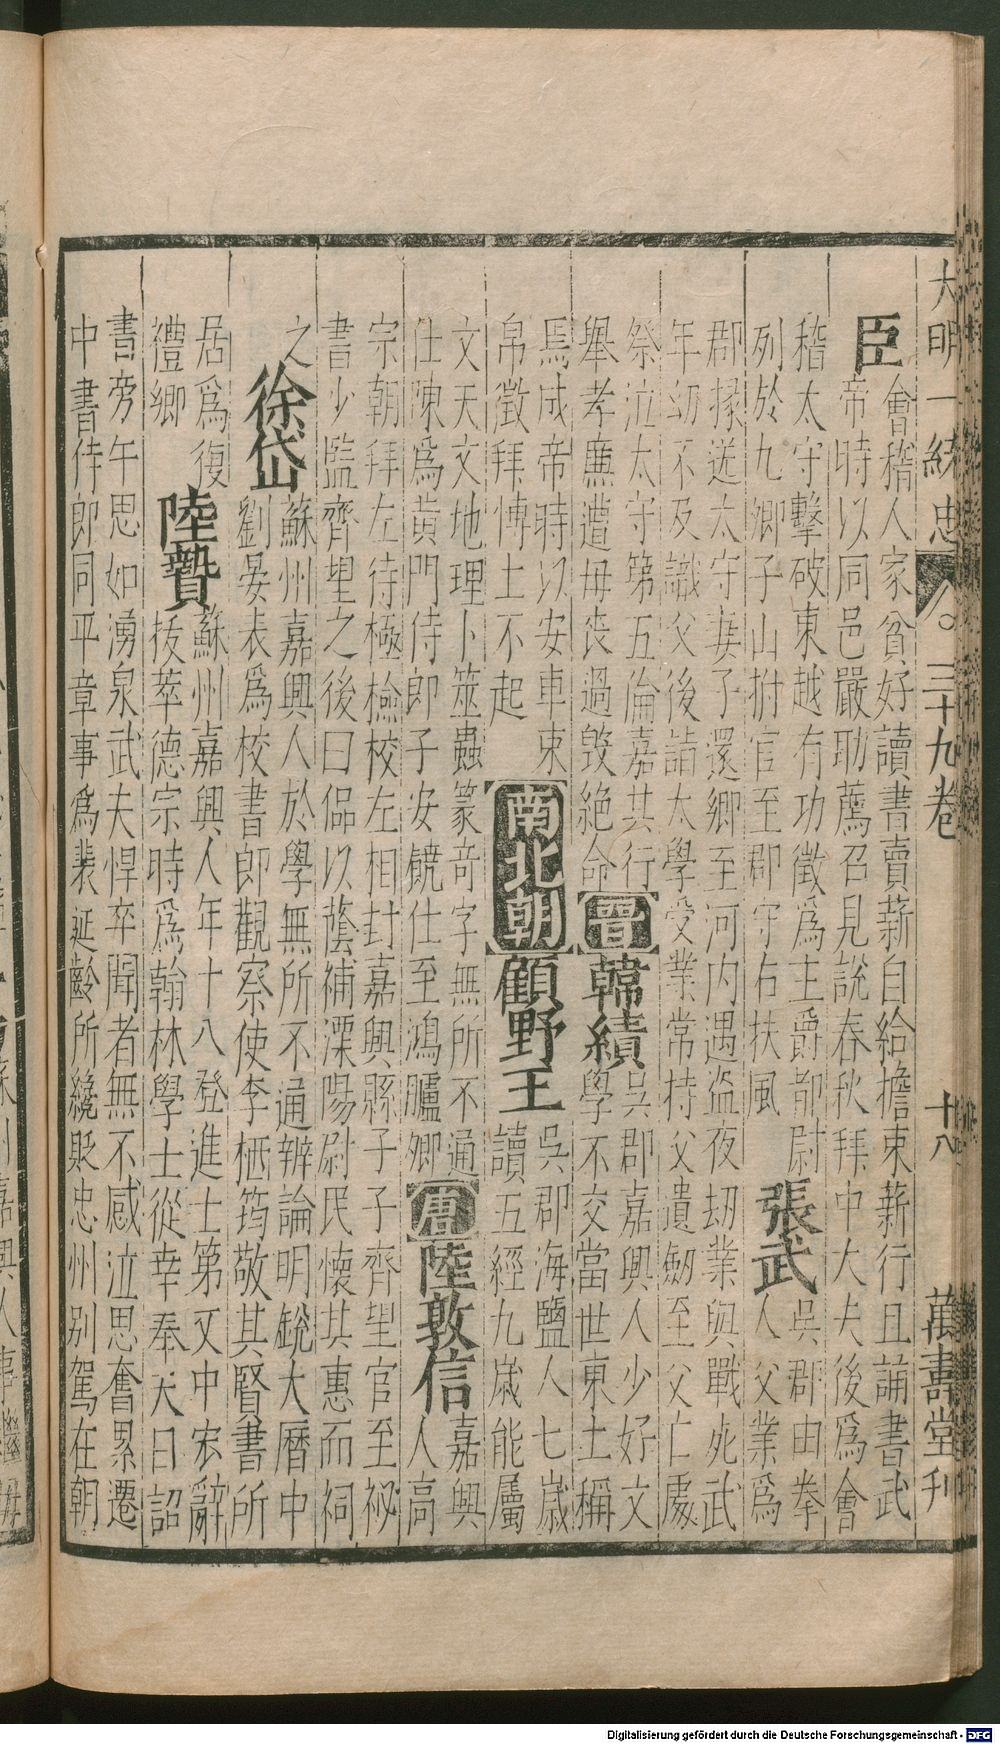 大明一統志 三十九卷 十八 萬壽堂刊
臣
會稽人家貧好讀書賣薪自給擔束薪行且誦書武
帝時以同邑嚴助薦召見說春秋拜中大夫後爲會
稽太守擊破東越有功徵爲主爵都尉
列於九卿子山拊官至郡守右扶風
張武
吳郡由拳
人父業爲
郡掾送太守妻子還鄉至河内遇盜夜刧業與戰死武
年幼不及識父後詣太學受業常持父遺劒至父亡處
祭泣太守第五倫嘉其行
舉孝廉遭母喪過毀絕命
晉
韓績
吳郡嘉興人少好文
學不交當世東土稱
焉成帝時以安車束
帛徵拜博士不起
南北朝
顧野王
吳郡海鹽人七歲
讀五經九歲能屬
文天文地理卜筮蟲篆竒字無所不通
仕陳爲黄門侍郎子安饒仕至鴻臚卿
唐
陸敦信
嘉興
人高
宗朝拜左侍極檢校左相封嘉興縣子子齊望官至祕
書少監齊望之後曰偘以蔭補溧陽尉民懷其惠而祠
之
徐岱
蘇州嘉興人於學無所不通辨論明銳大曆中
劉晏表爲校書郎觀察使李栖筠敬其賢署所
居爲復
禮鄉
陸贄
蘇州嘉興人年十八登進士第又中宏辭
拔萃德宗時爲翰林學士從幸奉天日詔
書旁午思如湧泉武夫悍卒聞者無不感泣思奮累遷
中書侍郎同平章事爲裴延齡所纔貶忠州别駕在朝
Digitalisierung gefördert durch die Deutsche Forschungsgemeinschaft - DFG